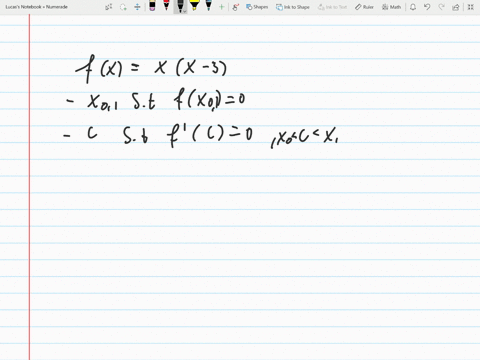 Lucas's Notebook » Numerade
Shapes Ink to Shape Ink to Text Ruler Math
f(x) = x(x-3)
- x₀,₁ s.t f(x₀,₁)=0
- c s.t f'(c)=0 , x₀<c<x₁